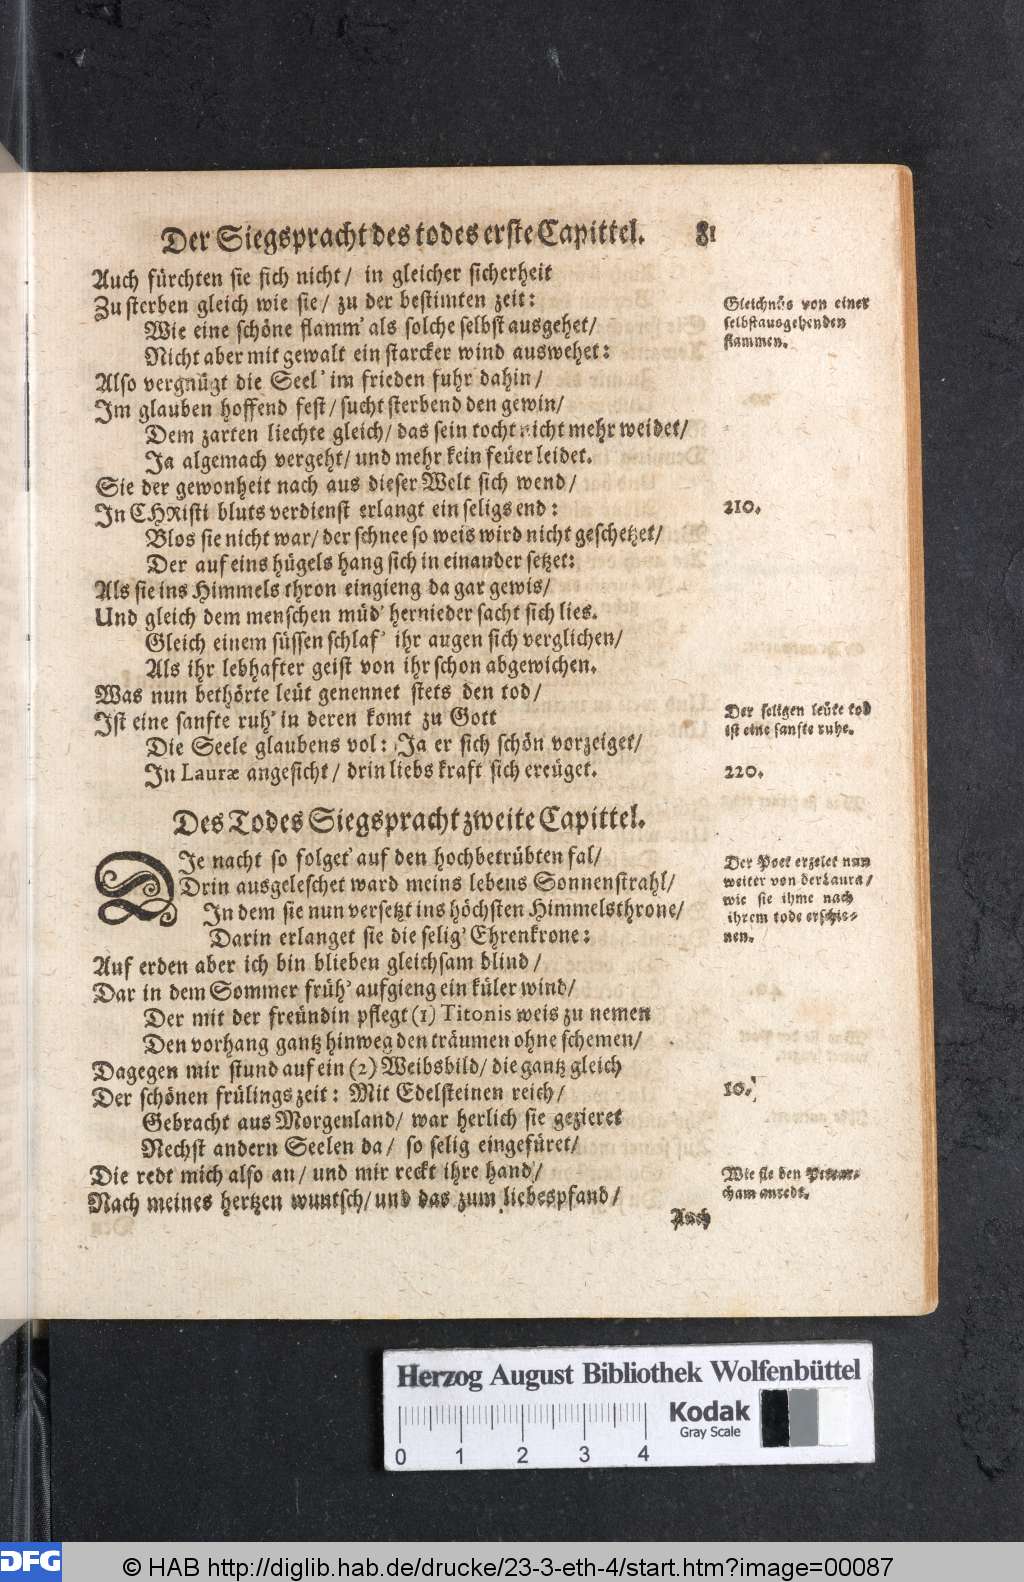 Der Siegspracht des todes erste Capittel. 81
Auch fürchten sie sich nicht/ in gleicher sicherheit
Zu sterben gleich wie sie/ zu der bestimten zeit:
Wie eine schöne flamm' als solche selbst ausgehet/
Nicht aber mit gewalt ein starcker wind auswehet:
Also vergnügt die Seel' im frieden fuhr dahin/
Im glauben hoffend fest/ sucht sterbend den gewin/
Dem zarten liechte gleich/ das sein tocht nicht mehr weidet/
Ja algemach vergeht/ und mehr kein feüer leidet.
Sie der gewonheit nach aus dieser Welt sich wend/
In CHRisti bluts verdienst erlangt ein seligs end:
Blos sie nicht war/ der schnee so weis wird nicht geschetzet/
Der auf eins hügels hang sich in einander setzet:
Als sie ins Himmels thron eingieng da gar gewis/
Und gleich dem menschen müd' hernieder sacht sich lies.
Gleich einem süssen schlaf' ihr augen sich verglichen/
Als ihr lebhafter geist von ihr schon abgewichen.
Was nun bethörte leüt genennet stets den tod/
Ist eine sanfte ruh' in deren komt zu Gott
Die Seele glaubens vol: Ja er sich schön vorzeiget/
In Lauræ angesicht/ drin liebs kraft sich ereüget.
Gleichnüs von einer
selbstausgehenden
flammen.
210.
Der seligen leüte tod
ist eine sanfte ruhe.
220.
Des Todes Siegspracht zweite Capittel.
DIe nacht so folget' auf den hochbetrübten fal/
Drin ausgeleschet ward meins lebens Sonnenstrahl/
In dem sie nun versetzt ins höchsten Himmelsthrone/
Darin erlanget sie die selig' Ehrenkrone:
Auf erden aber ich bin blieben gleichsam blind/
Dar in dem Sommer früh' aufgieng ein küler wind/
Der mit der freündin pflegt (1) Titonis weis zu nemen
Den vorhang gantz hinweg den träumen ohne schemen/
Dagegen mir stund auf ein (2) Weibsbild/ die gantz gleich
Der schönen frülings zeit: Mit Edelsteinen reich/
Gebracht aus Morgenland/ war herlich sie gezieret
Nechst andern Seelen da/ so selig eingefüret/
Die redt mich also an/ und mir reckt ihre hand/
Nach meines hertzen wuntsch/ und das zum liebespfand/
Auch
Der Poet erzelet nun
weiter von der Laura/
wie sie ihme nach
ihrem tode erschie-
nen.
10.
Wie sie den Petrar-
cham anredt.
Herzog August Bibliothek Wolfenbüttel
Kodak
Gray Scale
0 1 2 3 4
DFG
© HAB http://diglib.hab.de/drucke/23-3-eth-4/start.htm?image=00087